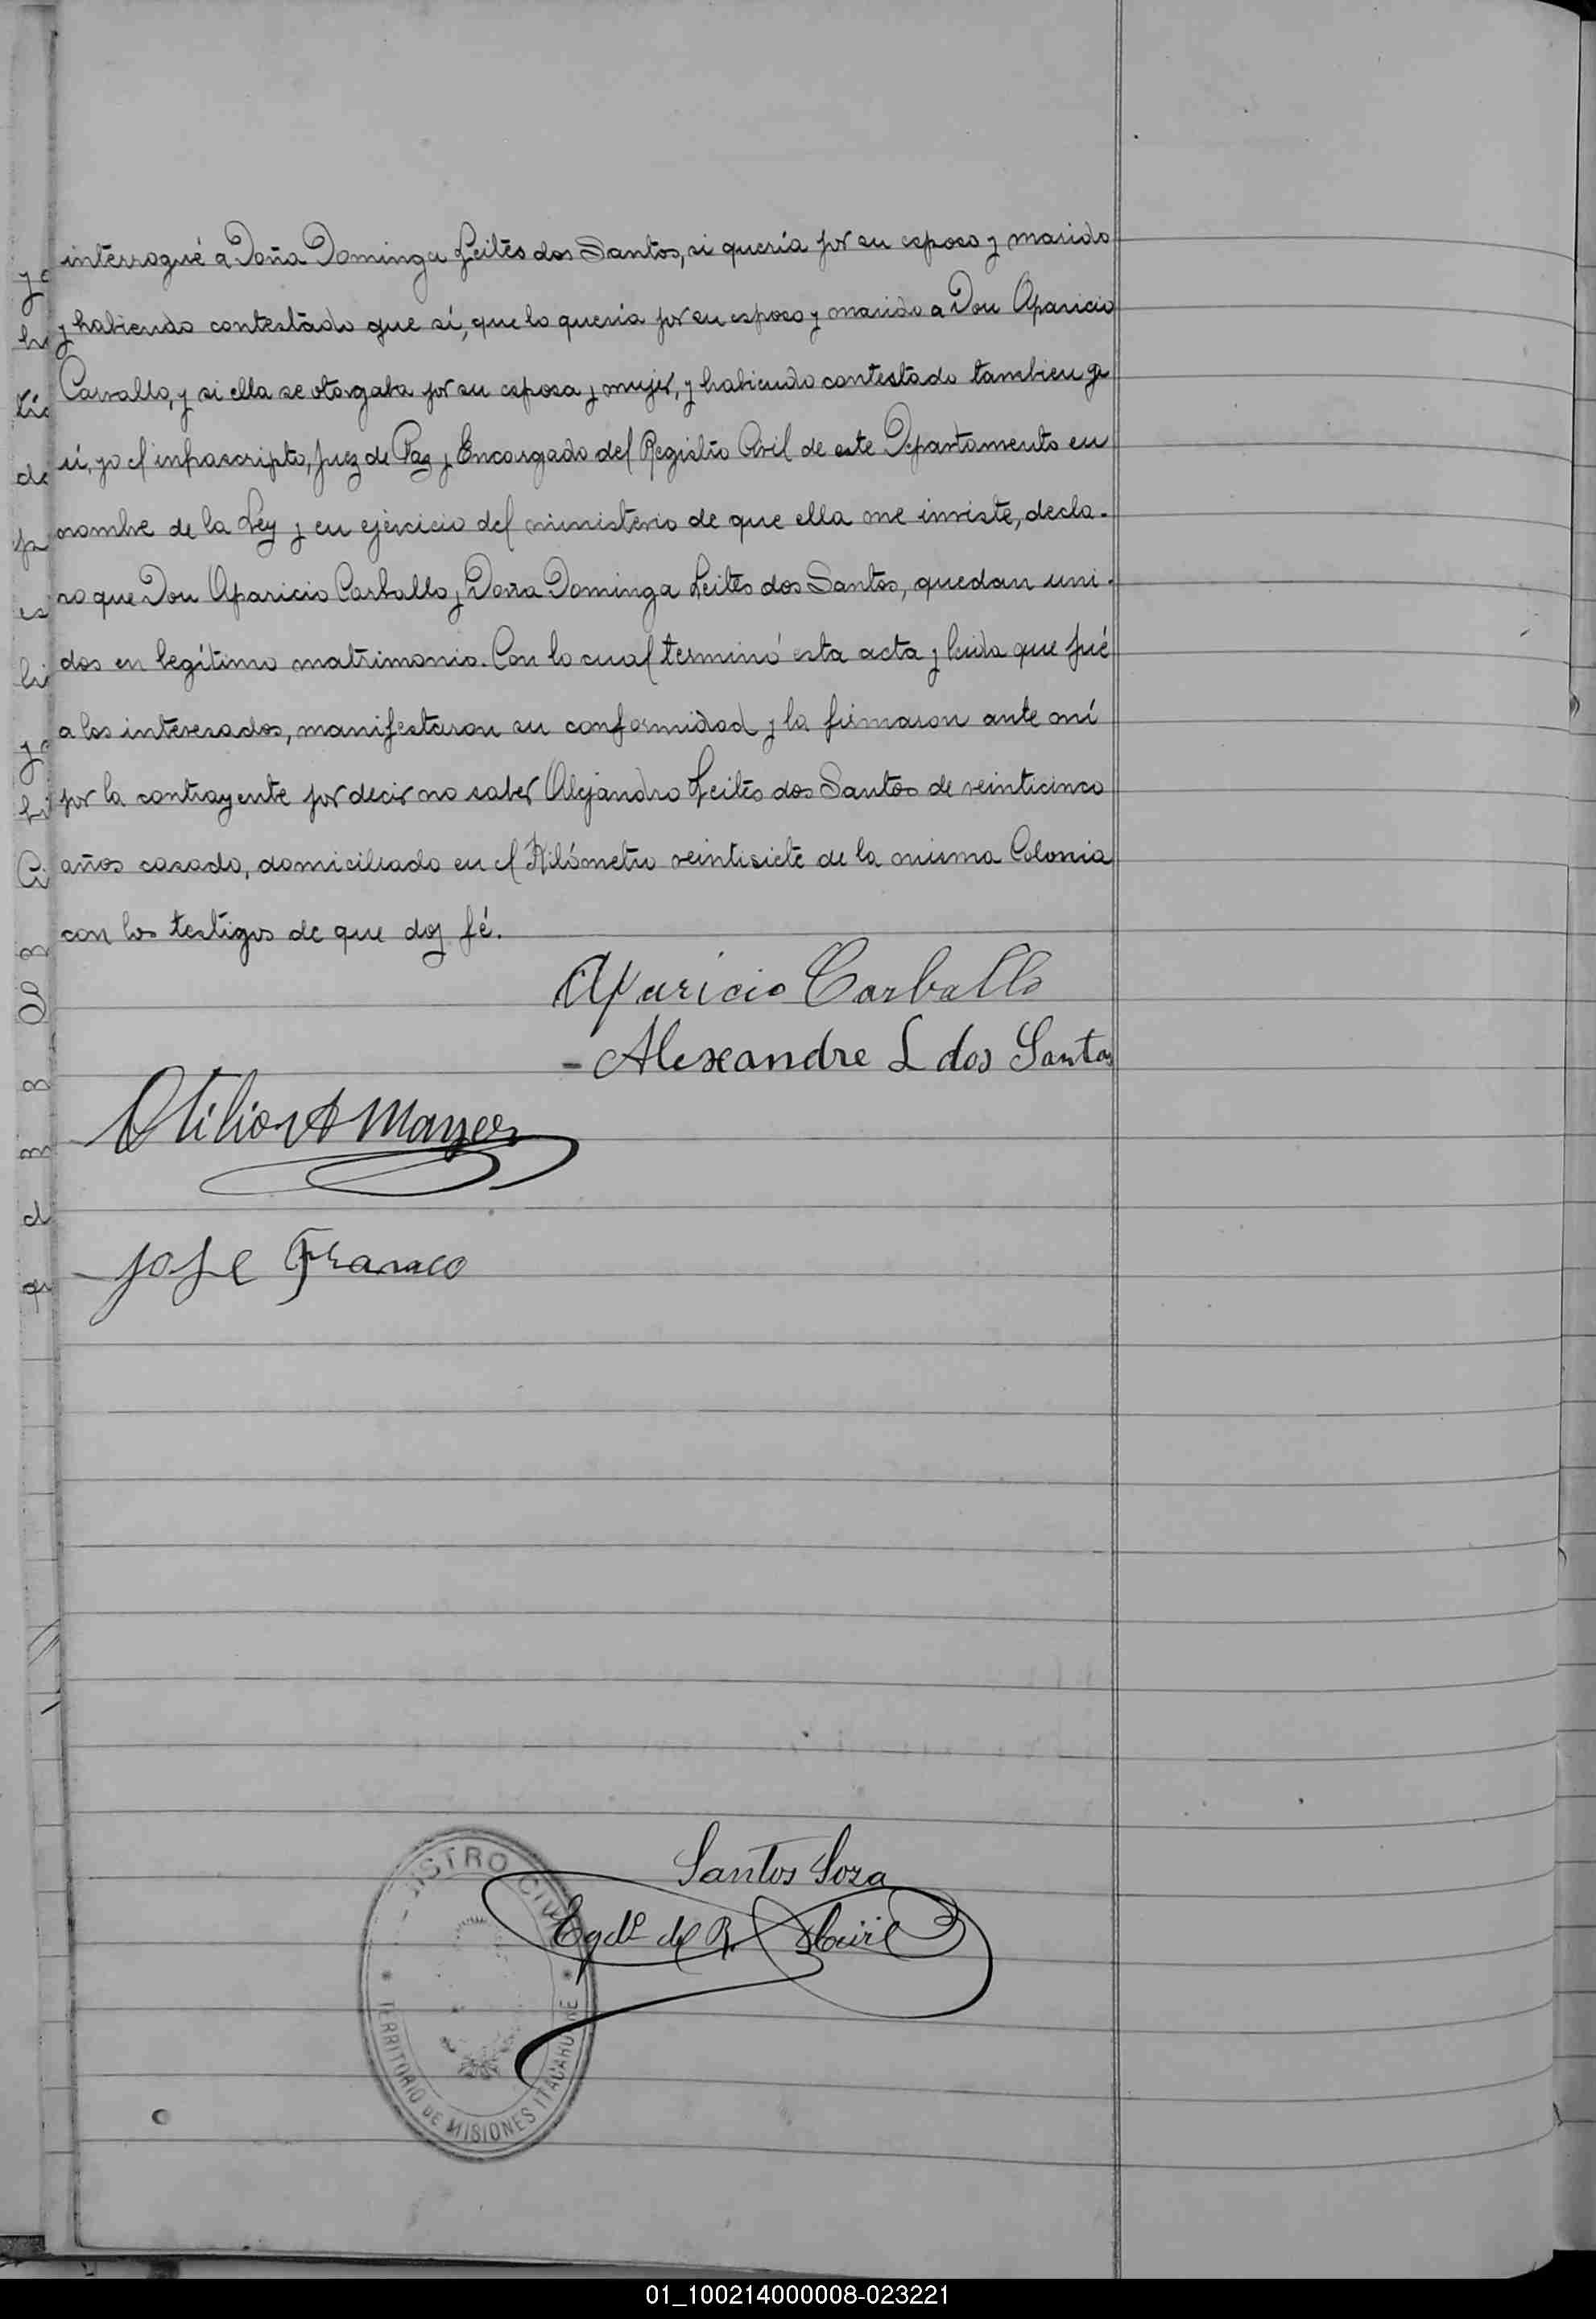 interrogué a Doña Dominga Leites dos Santos, si quería por su esposo y marido
y habiendo contestado que sí, que lo quería por su esposo y marido a Don Aparicio
Carvallo, y si ella se otorgaba por su esposa y mujer, y habiendo contestado tambien que
sí, yo el infrascripto, Juez de Paz y Encargado del Registro Civil de este Departamento en
nombre de la Ley y en ejercicio del ministerio de que ella me inviste, decla-
ro que Don Aparicio Carballo y Doña Dominga Leites dos Santos, quedan uni-
dos en legítimo matrimonio. Con lo cual terminó esta acta y leida que fué
a los interesados, manifestaron su conformidad y la firmaron ante mí
por la contrayente por decir no saber Alejandro Leites dos Santos de veinticinco
años casado, domiciliado en el Kilómetro veintisiete de la misma Colonia
con los testigos de que doy fé.
Aparicio Carballo
- Alexandre L dos Santos
Otilio A Mayer
José Franco
Santos Soza
Egdo. del R. Civil
REGISTRO CIVIL
TERRITORIO DE MISIONES ITACARUARE
01_100214000008-023221